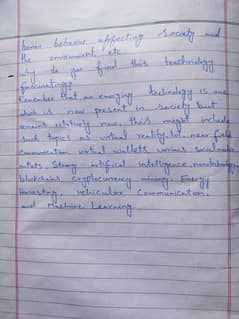 human behavior affecting society and
the environment, etc
why do you find this technology
fascinating?
Remember that an emerging technology is one
which is now present in society but
remains relatively new, this might include
such topics as virtual reality, near field
communication, virtual wallets, various social media
outlets, Strong artificial intelligence, nanotechnology,
blockchains, cryptocurrency mining, Energy
Harvesting, vehicular communication,
and Machine Learning